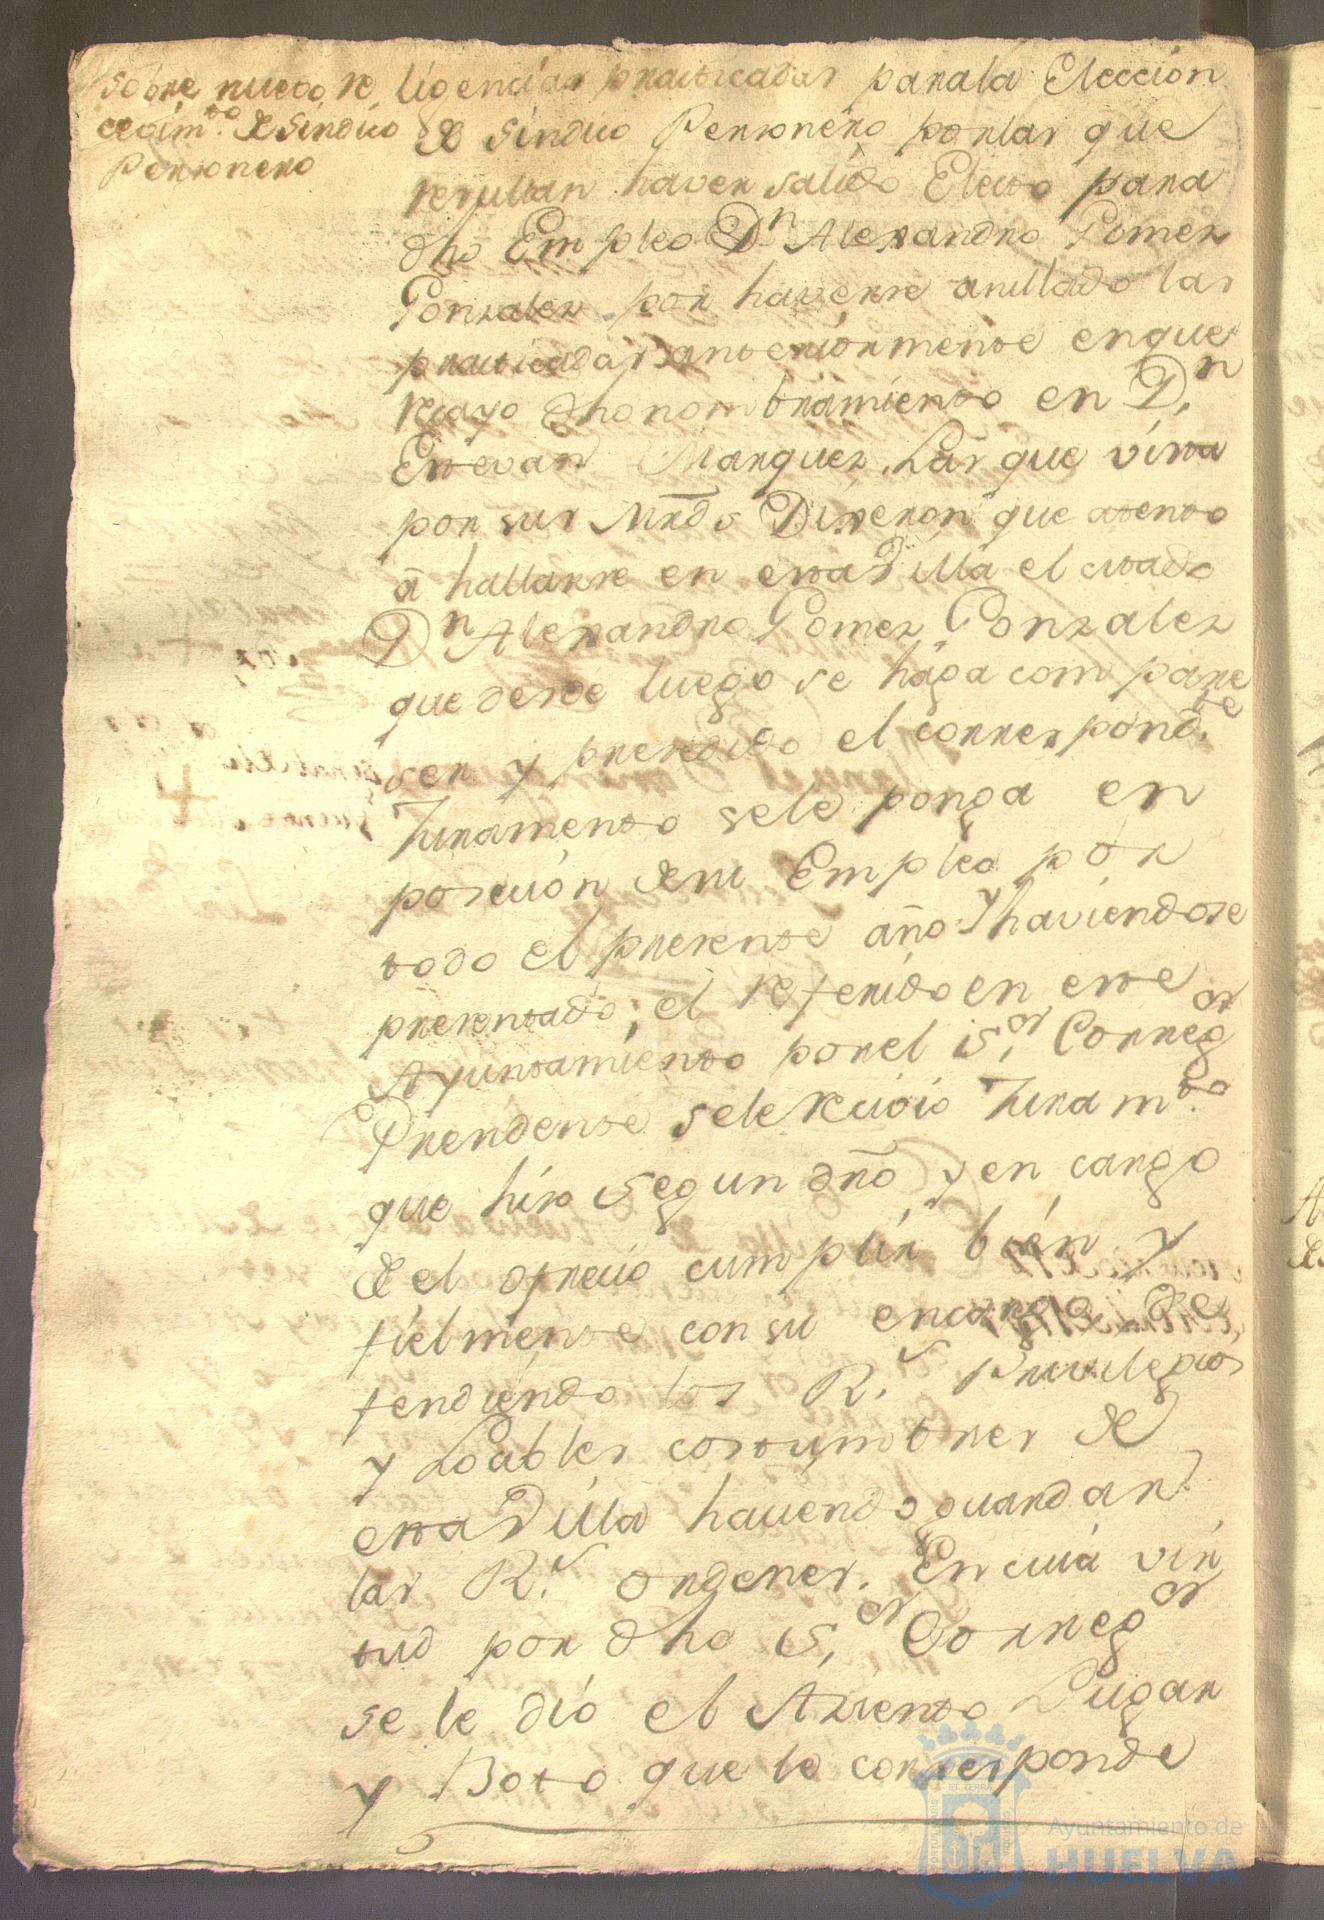 Sobre nuevo re
cevim.to de Sindico
Personero
ligencias practicadas para la Eleccion
de Sindico Personero por las que
resultan haver salido Electo para
dho Empleo Dn Alexandro Gomez
Gonzalez por haverse anullado las
practicadas anteriormente en que
recayo dho nombramiento en Dn.
Estevan Marquez, Las que vista
por sus Mrds Dixeron que atento
à hallarse en esta Villa el citado
Dn Alexandro Gomez Gonzalez
que desde luego se haga compare
ser y presedido el correspond.te
Juramento se le ponga en
posecion de su Empleo por
todo el presente año y haviendose
presentado, el referido en este
Ayuntamiento por el S.or Correg.or
Precidente se le recivio Juram.to
que hiso segun dro y en cargo
de el ofrecio cumplir bien y
fielmente con su encargo De
fendiendo los R.s Privilegios
y Loables costumbres de
esta Villa haciendo guardar
las R.s Ordenes. En cuia vir
tud por dho S.or Correg.or
se le dió el Aziento Lugar
y Boto que le corresponde
Ayuntamiento de
HUELVA